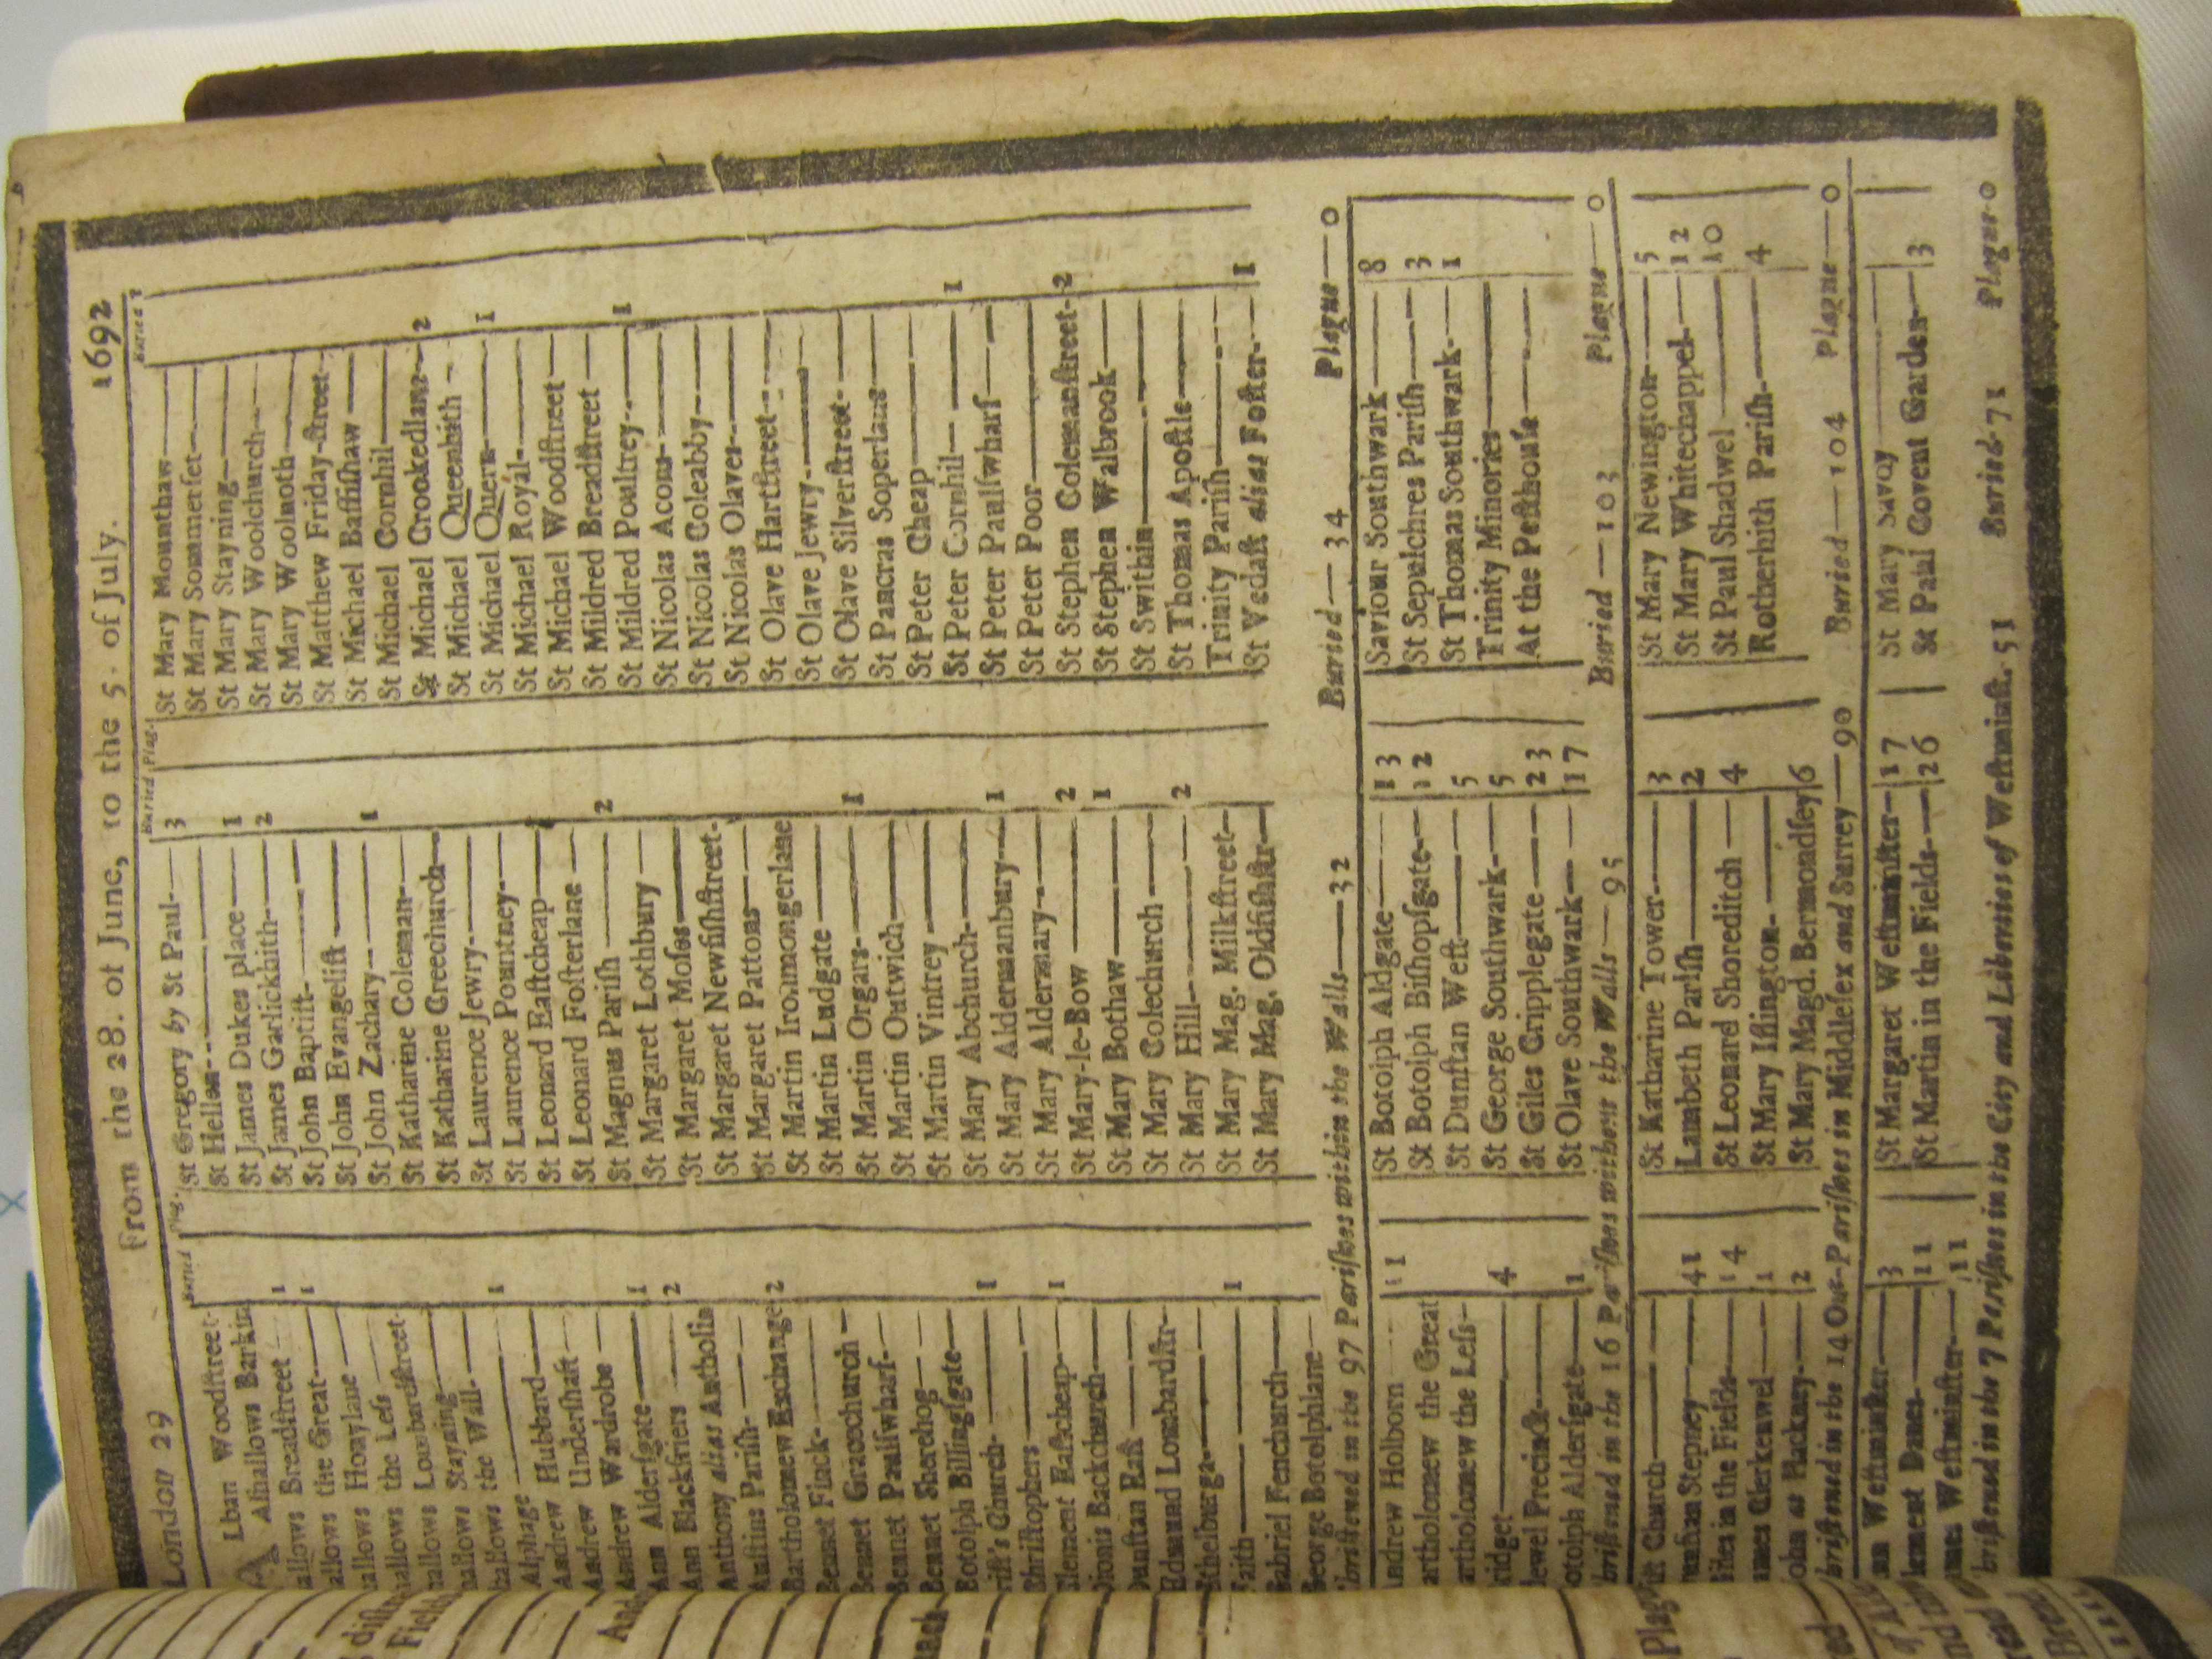 London 29 From the 28. of June, to the 5. of July. 1692
Buried Plag.
Lban Woodſtreet
Alhallows Barkin
allows Breadſtreet 1
allows the Great 1
allows Honylane
hallows the Leſs
hallows Lombardſtreet
hallows Stayning
hallows the Wall 1
Alphage
Andrew Hubbard
Andrew Underſhaft
Andrew Wardrobe
Ann Alderſgate 1
Ann Blackfriers 2
Anthony alias Antholin
Auſtins Pariſh
Bartholomew Exchange 2
Bennet Finck
Bennet Gracechurch
Bennet Paulſwharf
Bennet Sherehog
Botolph Billingſgate
riſt's Church 1
Chriſtophers
Clement Eaſtcheap 1
Dionis Backchurch
Dunſtan Eaſt
Edmund Lombardſtr
Ethelburga
Faith 1
Gabriel Fenchurch
George Botolphlane
Buried Plag.
St Gregory by St Paul 3
St Hellen
St James Dukes place 1
St James Garlickhith 2
St John Baptiſt
St John Evangeliſt
St John Zachary 1
St Katharine Coleman
St Katharine Creechurch
St Laurence Jewry
St Laurence Pountney
St Leonard Eaſtcheap
St Leonard Foſterlane
St Magnus Pariſh 2
St Margaret Lothbury
St Margaret Moſes
St Margaret Newfiſhſtreet
St Margaret Pattons
St Martin Ironmongerlane
St Martin Ludgate
St Martin Orgars 1
St Martin Outwich
St Martin Vintrey
St Mary Abchurch
St Mary Aldermanbury 1
St Mary Aldermary
St Mary-le-Bow 2
St Mary Bothaw 1
St Mary Colechurch
St Mary Hill 2
St Mary Mag. Milkſtreet
St Mary Mag. Oldfiſhſtr
Buried
St Mary Mounthaw
St Mary Sommerſet
St Mary Stayning
St Mary Woolchurch
St Mary Woolnoth
St Matthew Friday-ſtreet
St Michael Baſſiſhaw
St Michael Cornhil
St Michael Crookedlane 2
St Michael Queenhith
St Michael Quern 1
St Michael Royal
St Michael Woodſtreet
St Mildred Breadſtreet
St Mildred Poultrey 1
St Nicolas Acons
St Nicolas Coleabby
St Nicolas Olaves
St Olave Hartſtreet
St Olave Jewry
St Olave Silverſtreet
St Pancras Soperlane
St Peter Cheap
St Peter Cornhil 1
St Peter Paulſwharf
St Peter Poor
St Stephen Colemanſtreet 2
St Stephen Walbrook
St Swithin
St Thomas Apoſtle
Trinity Pariſh
St Vedaſt alias Foſter 1
briſtened in the 97 Pariſhes within the Walls 32 Buried 34 Plague 0
Andrew Holborn 11
artholomew the Great
artholomew the Leſs
ridget 4
dewel Precinct
otolph Alderſgate 1
St Botolph Aldgate 13
St Botolph Biſhopſgate 12
St Dunſtan Weſt 5
St George Southwark 5
St Giles Cripplegate 23
St Olave Southwark 17
Saviour Southwark 8
St Sepulchres Pariſh 3
St Thomas Southwark 1
Trinity Minories
At the Peſthouſe
briſtened in the 16 Pariſhes without the Walls 95 Buried 103 Plague 0
iſt Church
unſtan Stepney 41
iles in the Fields 14
ames Clerkenwel 1
ohn at Hackney 2
St Katharine Tower 3
Lambeth Pariſh 2
St Leonard Shoreditch 4
St Mary Iſlington
St Mary Magd. Bermondſey 6
St Mary Newington 5
St Mary Whitechappel 12
St Paul Shadwel 10
Rotherhith Pariſh 4
briſtened in the 14 Out-Pariſhes in Middleſex and Surrey 90 Buried 104 Plague 0
nn Weſtminſter 3
lement Danes 11
ames Weſtminſter 11
St Margaret Weſtminſter 17
St Martin in the Fields 26
St Mary Savoy
St Paul Covent Garden 3
briſtened in the 7 Pariſhes in the City and Liberties of Weſtminſt. 51 Buried 71 Plague 0